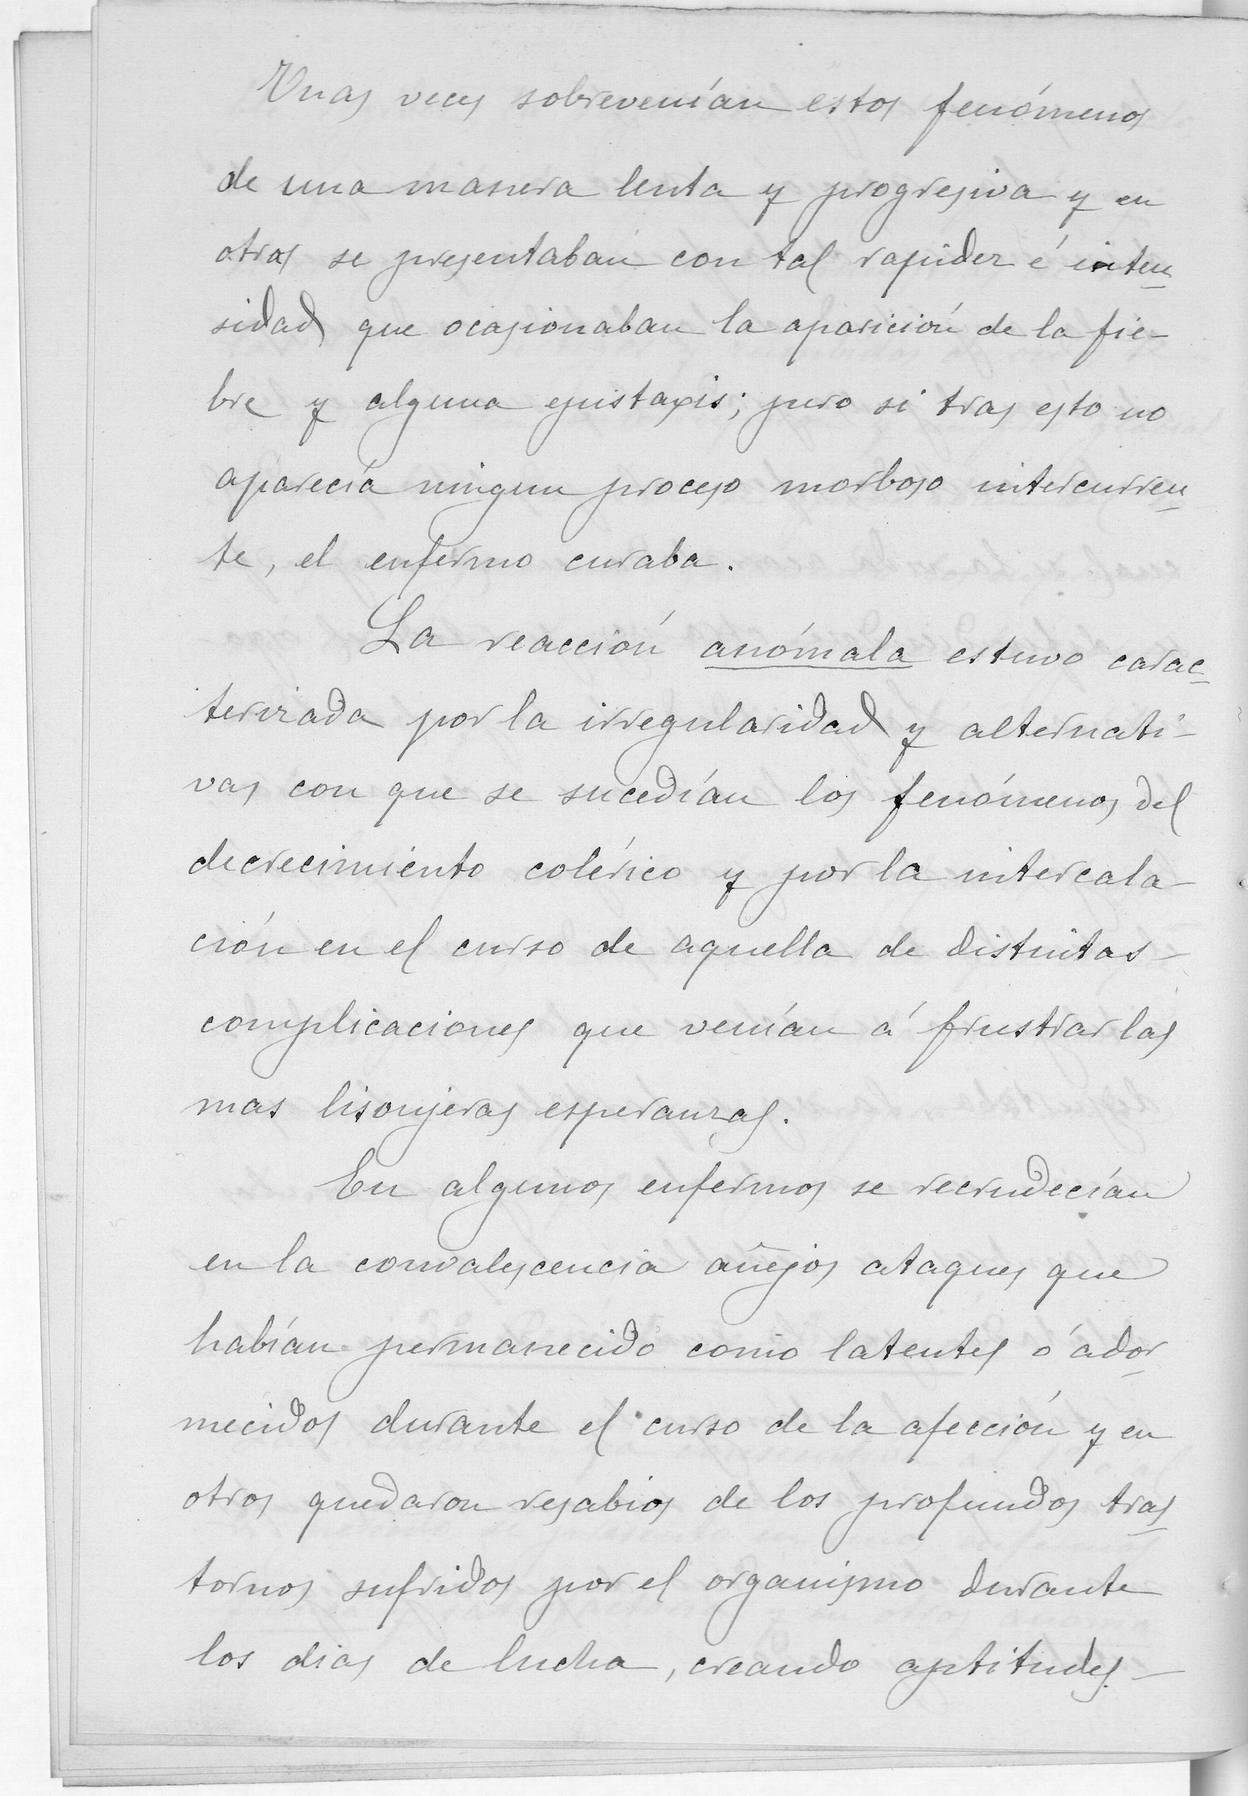 Unas veces sobrevenían estos fenómenos
de una manera lenta y progresiva y en
otras se presentaban con tal rapidez é inten
sidad que ocasionaban la aparición de la fie-
bre y alguna epistaxis; pero si tras esto no
aparecía ningun proceso morboso intercurren
te, el enfermo curaba.
La reacción anómala estuvo carac
terizada por la irregularidad y alternati-
vas con que se sucedían los fenómenos del
decrecimiento colérico y por la intercala-
ción en el curso de aquella de distintas-
complicaciones que venían á frustrar las
mas lisonjeras esperanzas.
En algunos enfermos se recrudecían
en la convalescencia añejos ataques que
habían permanecido como latentes ó ador
mecidos durante el curso de la afección y en
otros quedaron resabios de los profundos tras
tornos sufridos por el organismo durante
los dias de lucha, creando aptitudes-